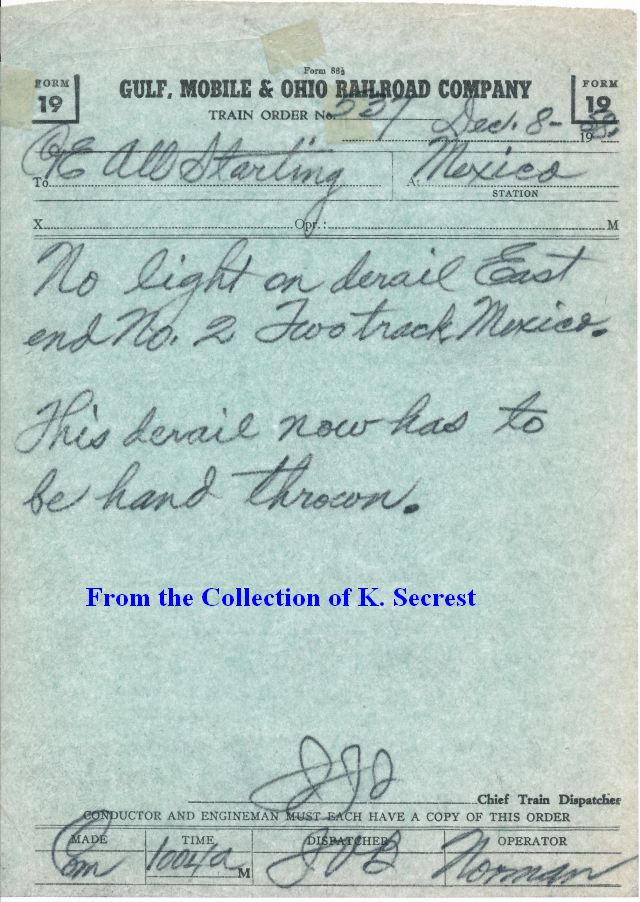 Form 88½
FORM 19
GULF, MOBILE & OHIO RAILROAD COMPANY
FORM 19
TRAIN ORDER No. 537 Dec. 8- 19
To C&E All Starting At Mexico
STATION
X Opr.: M
No light on derail East
end No. 2 Two track Mexico.
This derail now has to
be hand thrown.
From the Collection of K. Secrest
Chief Train Dispatcher
CONDUCTOR AND ENGINEMAN MUST EACH HAVE A COPY OF THIS ORDER
MADE TIME DISPATCHER OPERATOR
Com 1004a M JVB Norman